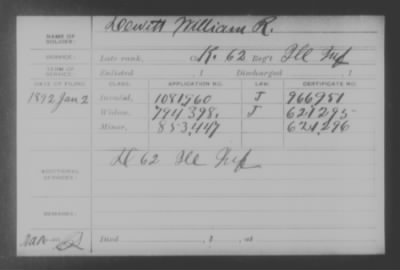 Dewitt William R.
NAME OF SOLDIER:
SERVICE: Late rank, Co K. 62 Reg't Ill Inf
TERM OF SERVICE: Enlisted , 1 Discharged , 1
DATE OF FILING. CLASS. APPLICATION NO. LAW. CERTIFICATE NO.
1892 Jan 2 Invalid, 1081960 J 966951
Widow, 794398. J 621295
Minor, 853447 621296
D 62 Ill Inf
ADDITIONAL SERVICES:
REMARKS:
Died , 1 , at